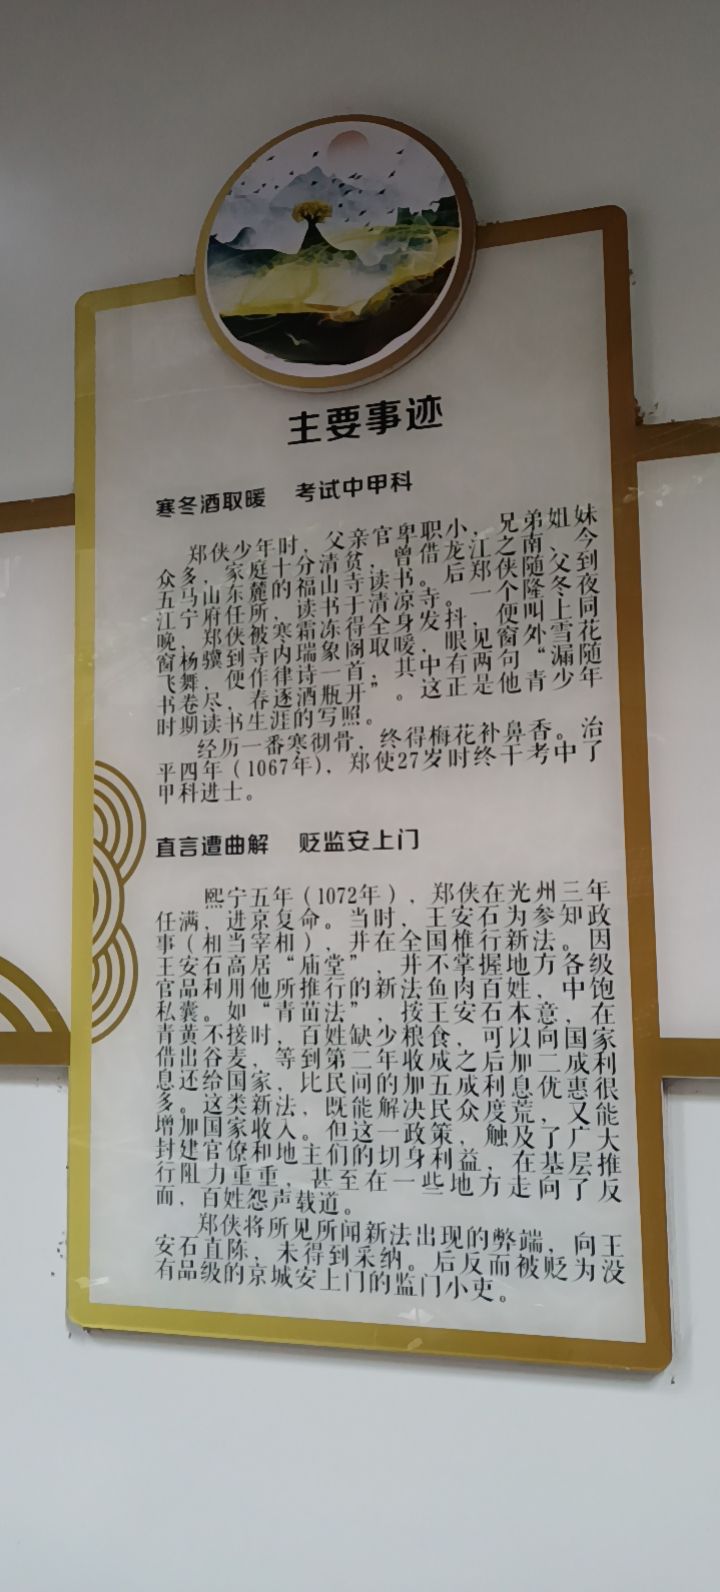 主要事迹
寒冬酒取暖 考试中甲科
郑侠少年时，父亲官卑职小，兄弟姐妹
众多，家庭十分清贫，曾借龙江之南，今
五马山东麓的福山寺读书。后郑侠随父到
江宁府任所，读书于清凉寺。一个隆冬夜
晚，郑侠被寒霜冻得全身发抖，便叫上同
窗杨骥到寺内瑞象阁取暖，眼见窗外雪花
飞舞，便作律诗一首，共中有两句“漏随
书卷尽，春逐酒瓶开”。这正是他青少年
时期读书生涯的写照。
经历一番寒彻骨，终得梅花补鼻香。治
平四年（1067年），郑使27岁时终干考中了
甲科进士。
直言遭曲解 贬监安上门
熙宁五年（1072年），郑侠在光州三年
任满，进京复命。当时，王安石为参知政
事（相当宰相），并在全国椎行新法。因
王安石高居“庙堂”，并不掌握地方各级
官品利用他所推行的新法鱼肉百姓，中饱
私囊。如“青苗法”，按王安石本意，在
青黄不接时，百姓缺少粮食，可以向国家
借出谷麦，等到第二年收成之后加二成利
息还给国家，比民间的加五成利息优惠很
多。这类新法，既能解决民众度荒，又能
增加国家收入。但这一政策，触及了广大
封建官僚和地主们的切身利益，在基层推
行阻力重重，甚至在一些地方走向了反
面，百姓怨声载道。
郑侠将所见所闻新法出现的弊端，向王
安石直陈，未得到采纳。后反而被贬为没
有品级的京城安上门的监门小吏。